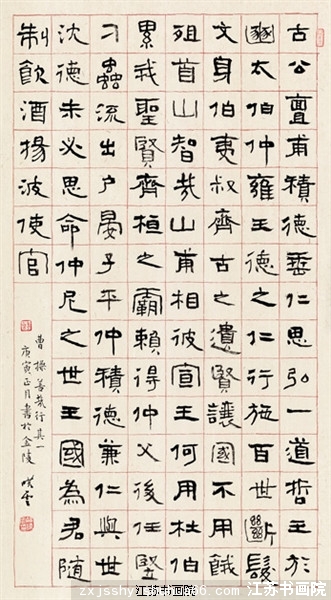 古公亶甫積德垂仁思弘一道哲王於
豳太伯仲雍王德之仁行施百世斷髮
文身伯夷叔齊古之遺賢讓國不用餓
殂首山智哉山甫相彼宣王何用杜伯
累我聖賢齊桓之霸賴得仲父後任豎
刁蟲流出户晏子平仲積德兼仁與世
沈德未必思命仲尼之世王國為君隨
制飲酒揚波使官
曹操善哉行其一
庚寅正月書於金陵
江苏书画院
江苏书画院